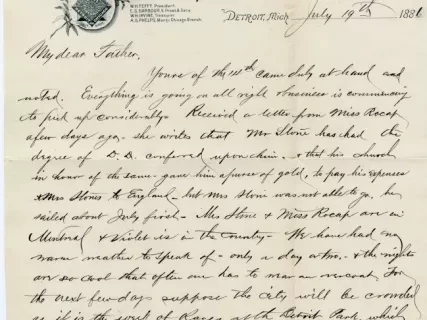 W.H. PEFFY, President.
Treasurer
A.G. PHELPS, Man'gr Chicago Branch.
DETROIT, Mich July 19th 188
My dear Father,
Yours of the 14th came duly at hand and
noted. Everything is going on all right & business is commencing
to pick up considerably. Received a letter from Miss Rocap
a few days ago, she writes that Mr Stone has had the
degree of D.D. confered upon him. & that his church
in honor of the same gave him a purse of gold, to pay his expenses
& Mrs Stones to England - but Mrs Stone was not able to go, he
sailed about July first - Mrs Stone & Miss Rocap are in
Montreal & Violet is in the Country - We have had no
warm weather to speak of - only a day or two, & the nights
are so cool that often one has to wear an overcoat, For
the next few days suppose the city will be crowded
as it is the week of Races at the Detroit Park, which